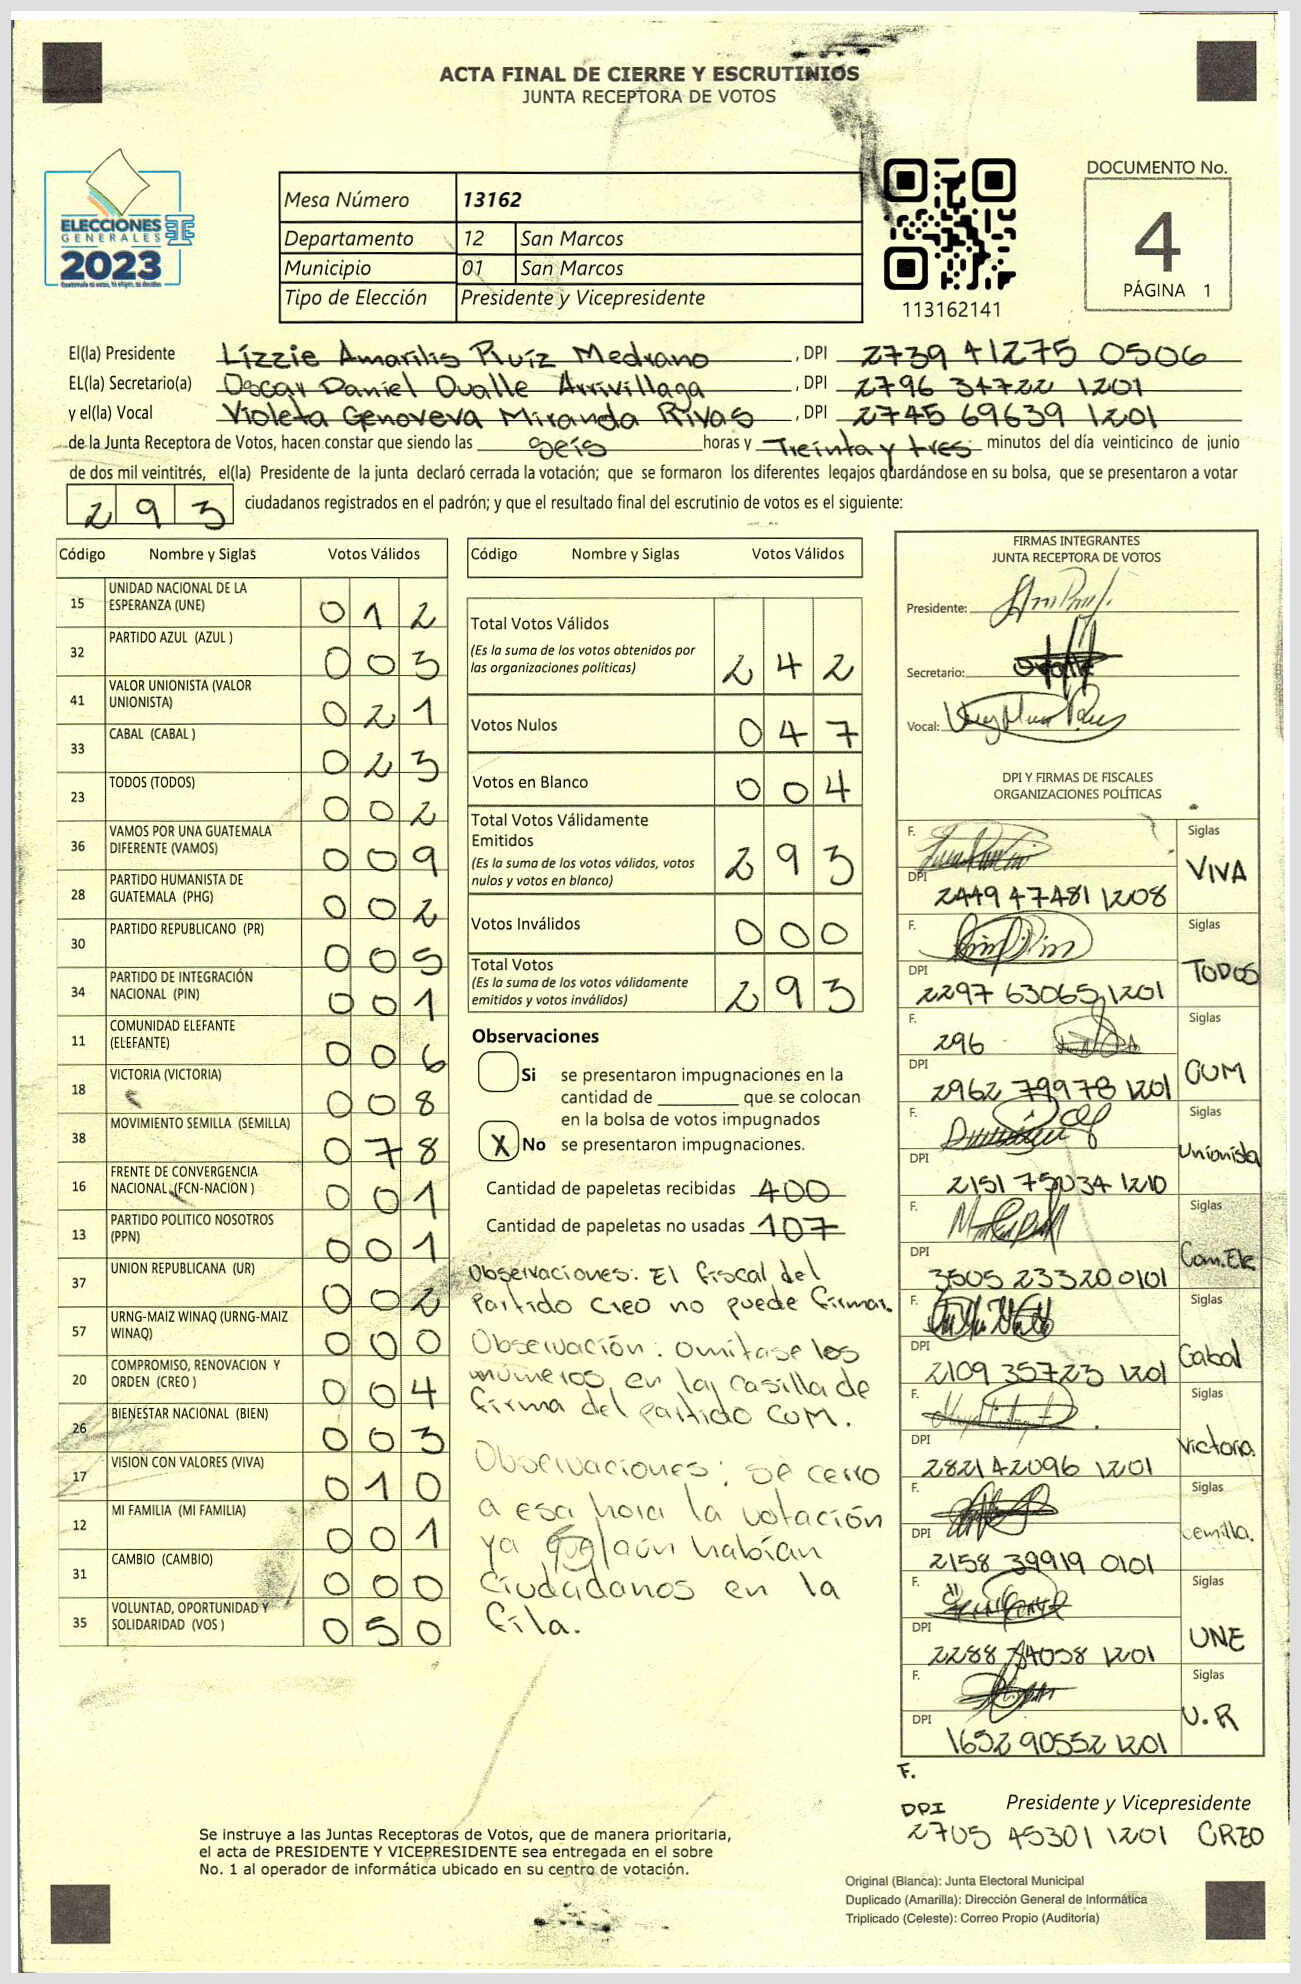 ACTA FINAL DE CIERRE Y ESCRUTINIOS
JUNTA RECEPTORA DE VOTOS
ELECCIONES
GENERALES
2023
Mesa Número 13162
Departamento 12 San Marcos
Municipio 01 San Marcos
Tipo de Elección Presidente y Vicepresidente
113162141
DOCUMENTO No.
4
PÁGINA 1
El(la) Presidente Lizzie Amarilis Ruíz Medrano, DPI 2739 41275 0506
EL(la) Secretario(a) Oscar Daniel Ovalle Arrivillaga, DPI 2796 34722 1201
y el(la) Vocal Violeta Genoveva Miranda Rivas, DPI 2745 69639 1201
de la Junta Receptora de Votos, hacen constar que siendo las seis horas y Treinta y tres minutos del día veinticinco de junio
de dos mil veintitrés, el(la) Presidente de la junta declaró cerrada la votación; que se formaron los diferentes legajos guardándose en su bolsa, que se presentaron a votar
293 ciudadanos registrados en el padrón; y que el resultado final del escrutinio de votos es el siguiente:
Código Nombre y Siglas Votos Válidos
15 UNIDAD NACIONAL DE LA ESPERANZA (UNE) 012
32 PARTIDO AZUL (AZUL ) 003
41 VALOR UNIONISTA (VALOR UNIONISTA) 021
33 CABAL (CABAL ) 023
23 TODOS (TODOS) 002
36 VAMOS POR UNA GUATEMALA DIFERENTE (VAMOS) 009
28 PARTIDO HUMANISTA DE GUATEMALA (PHG) 002
30 PARTIDO REPUBLICANO (PR) 005
34 PARTIDO DE INTEGRACIÓN NACIONAL (PIN) 001
11 COMUNIDAD ELEFANTE (ELEFANTE) 006
18 VICTORIA (VICTORIA) 008
38 MOVIMIENTO SEMILLA (SEMILLA) 078
16 FRENTE DE CONVERGENCIA NACIONAL (FCN-NACION ) 001
13 PARTIDO POLITICO NOSOTROS (PPN) 001
37 UNION REPUBLICANA (UR) 002
57 URNG-MAIZ WINAQ (URNG-MAIZ WINAQ) 000
20 COMPROMISO, RENOVACION Y ORDEN (CREO ) 004
26 BIENESTAR NACIONAL (BIEN) 003
17 VISION CON VALORES (VIVA) 010
12 MI FAMILIA (MI FAMILIA) 001
31 CAMBIO (CAMBIO) 000
35 VOLUNTAD, OPORTUNIDAD Y SOLIDARIDAD (VOS ) 050
Código Nombre y Siglas Votos Válidos
Total Votos Válidos 242
(Es la suma de los votos obtenidos por
las organizaciones políticas)
Votos Nulos 047
Votos en Blanco 004
Total Votos Válidamente
Emitidos 293
(Es la suma de los votos válidos, votos
nulos y votos en blanco)
Votos Inválidos 000
Total Votos 293
(Es la suma de los votos válidamente
emitidos y votos inválidos)
Observaciones
Si se presentaron impugnaciones en la
cantidad de ________ que se colocan
en la bolsa de votos impugnados
X No se presentaron impugnaciones.
Cantidad de papeletas recibidas 400
Cantidad de papeletas no usadas 107
Observaciones: El fiscal del
Partido Creo no puede firmar.
Observación: omitase los
números en la casilla de
firma del partido CUM.
Observaciones: se cerro
a esa hora la votación
ya que aún habían
ciudadanos en la
fila.
FIRMAS INTEGRANTES
JUNTA RECEPTORA DE VOTOS
Presidente:
Secretario:
Vocal:
DPI Y FIRMAS DE FISCALES
ORGANIZACIONES POLÍTICAS
F. Siglas VIVA
DPI 2449 47481 1208
F. Siglas TODOS
DPI 2297 63065 1201
F. 296 Siglas CUM
DPI 2962 79978 1201
F. Siglas Unionista
DPI 2151 75034 1210
F. Siglas Com.Ele
DPI 3505 23320 0101
F. Siglas Cabal
DPI 2109 35723 1201
F. Siglas Victoria.
DPI 2821 42096 1201
F. Siglas Semilla.
DPI 2158 39919 0101
F. Siglas UNE
DPI 2288 84058 1201
F. Siglas U.R
DPI 1652 90552 1201
F.
Presidente y Vicepresidente
DPI
2705 45301 1201 CREO
Se instruye a las Juntas Receptoras de Votos, que de manera prioritaria,
el acta de PRESIDENTE Y VICEPRESIDENTE sea entregada en el sobre
No. 1 al operador de informática ubicado en su centro de votación.
Original (Blanca): Junta Electoral Municipal
Duplicado (Amarilla): Dirección General de Informática
Triplicado (Celeste): Correo Propio (Auditoría)